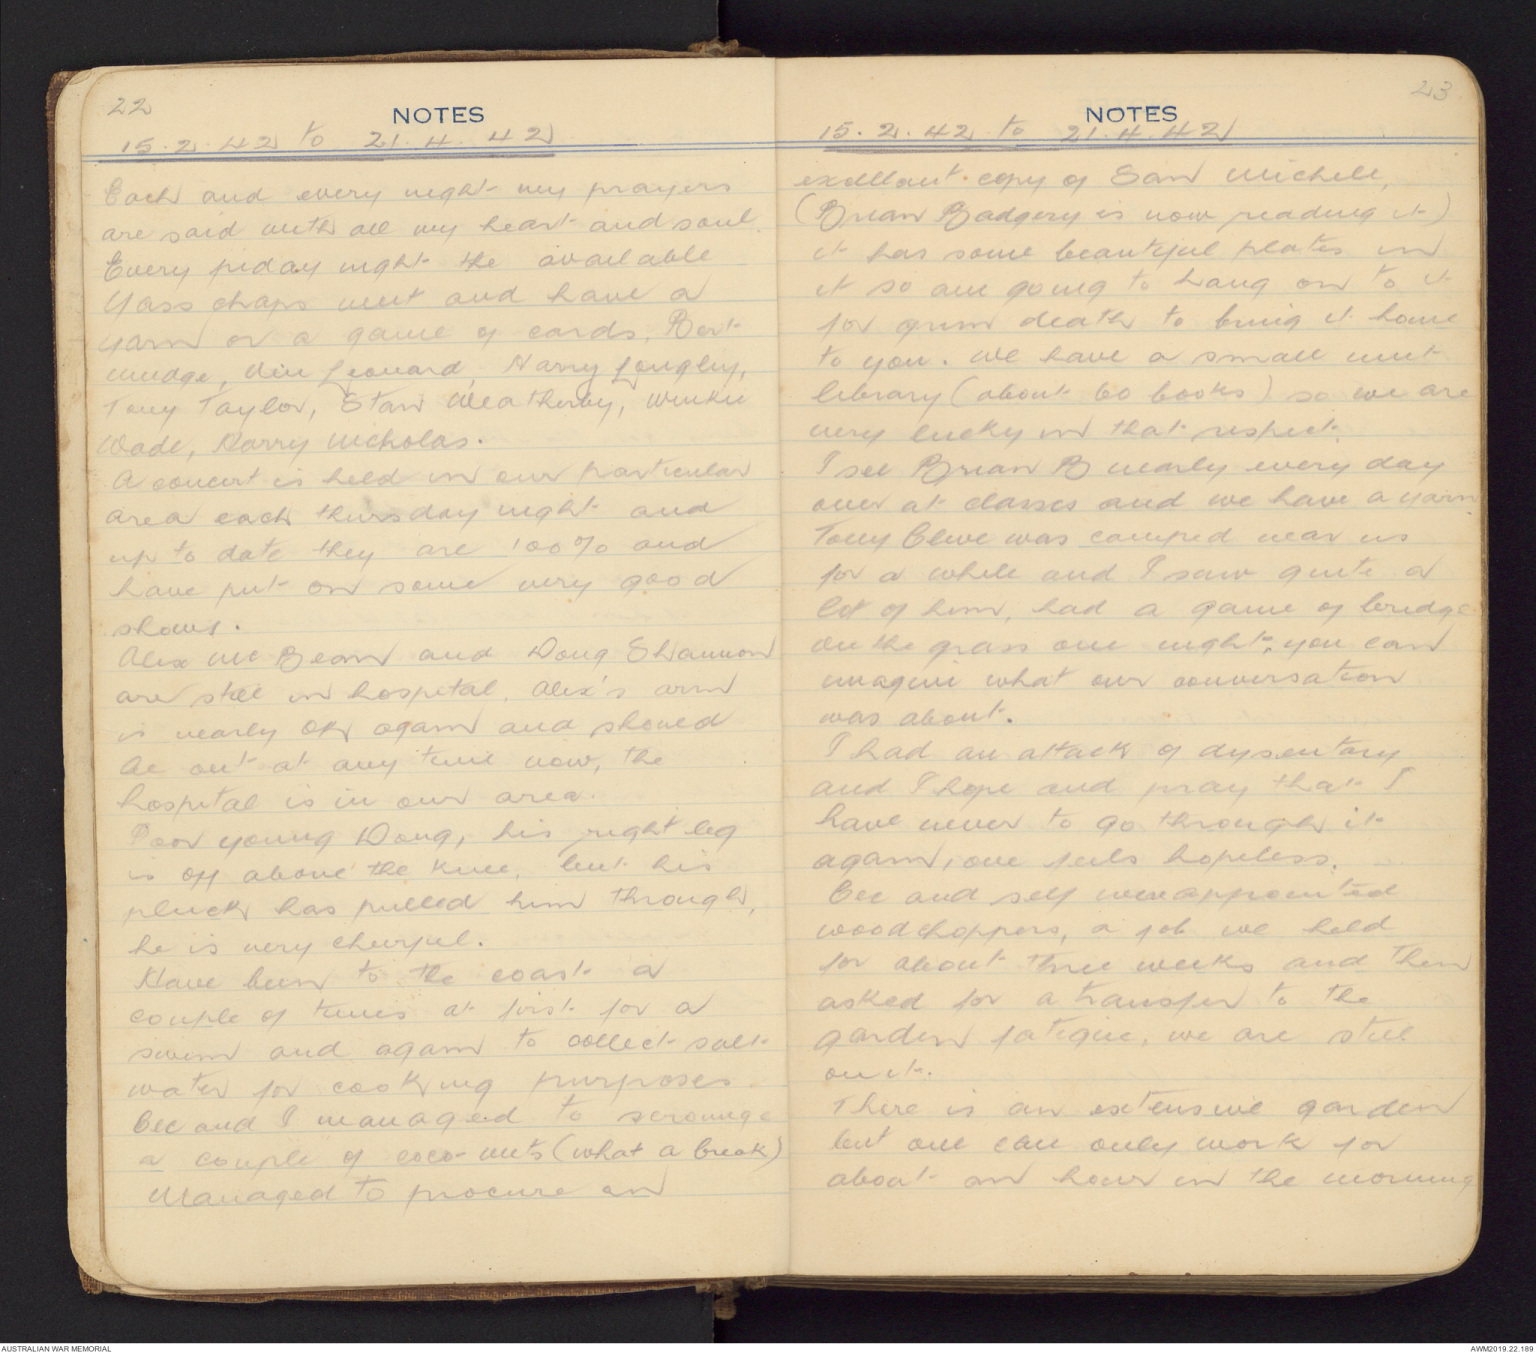 22
NOTES
15.2.42 to 21.4.42
Each and every night my prayers
are said with all my heart and soul.
Every friday night the available
Yass chaps meet and have a
yarn or a game of cards. Bert
Mudge, Viv Leonard, Harry Longley,
Tony Taylor, Stan Weatherby, Winkie
Wade, Harry Nicholas.
A concert is held in our particular
area each thursday night and
up to date they are 100% and
have put on some very good
shows.
Alex Mc Bean and Doug Shannon
are still in hospital. Alex's arm
is nearly OK again and should
be out at any time now, the
hospital is in our area.
Poor young Doug, his right leg
is off above the knee, but his
pluck has pulled him through,
he is very cheerful.
Have been to the coast a
couple of times at first for a
swim and again to collect salt
water for cooking purposes.
Cec and I managed to scrounge
a couple of coco-nuts (what a break)
Managed to procure an
23
NOTES
15.2.42 to 21.4.42
exellant copy of San Michele,
(Brian Badgery is now reading it)
it has some beautiful plates in
it so am going to hang on to it
for grim death to bring it home
to you. We have a small unit
library (about 60 books) so we are
very lucky in that respect.
I see Brian B nearly every day
over at classes and we have a yarn.
Tony Clive was camped near us
for a while and I saw quite a
lot of him, had a game of bridge
on the grass one night, you can
imagine what our conversation
was about.
I had an attack of dysentary
and I hope and pray that I
have never to go through it
again, one feels hopeless.
Cec and self were appointed
woodchoppers, a job we held
for about three weeks and then
asked for a transfer to the
garden fatigue, we are still
on it.
There is an extensive garden
but one can only work for
about an hour in the morning
AUSTRALIAN WAR MEMORIAL
AWM2019.22.189